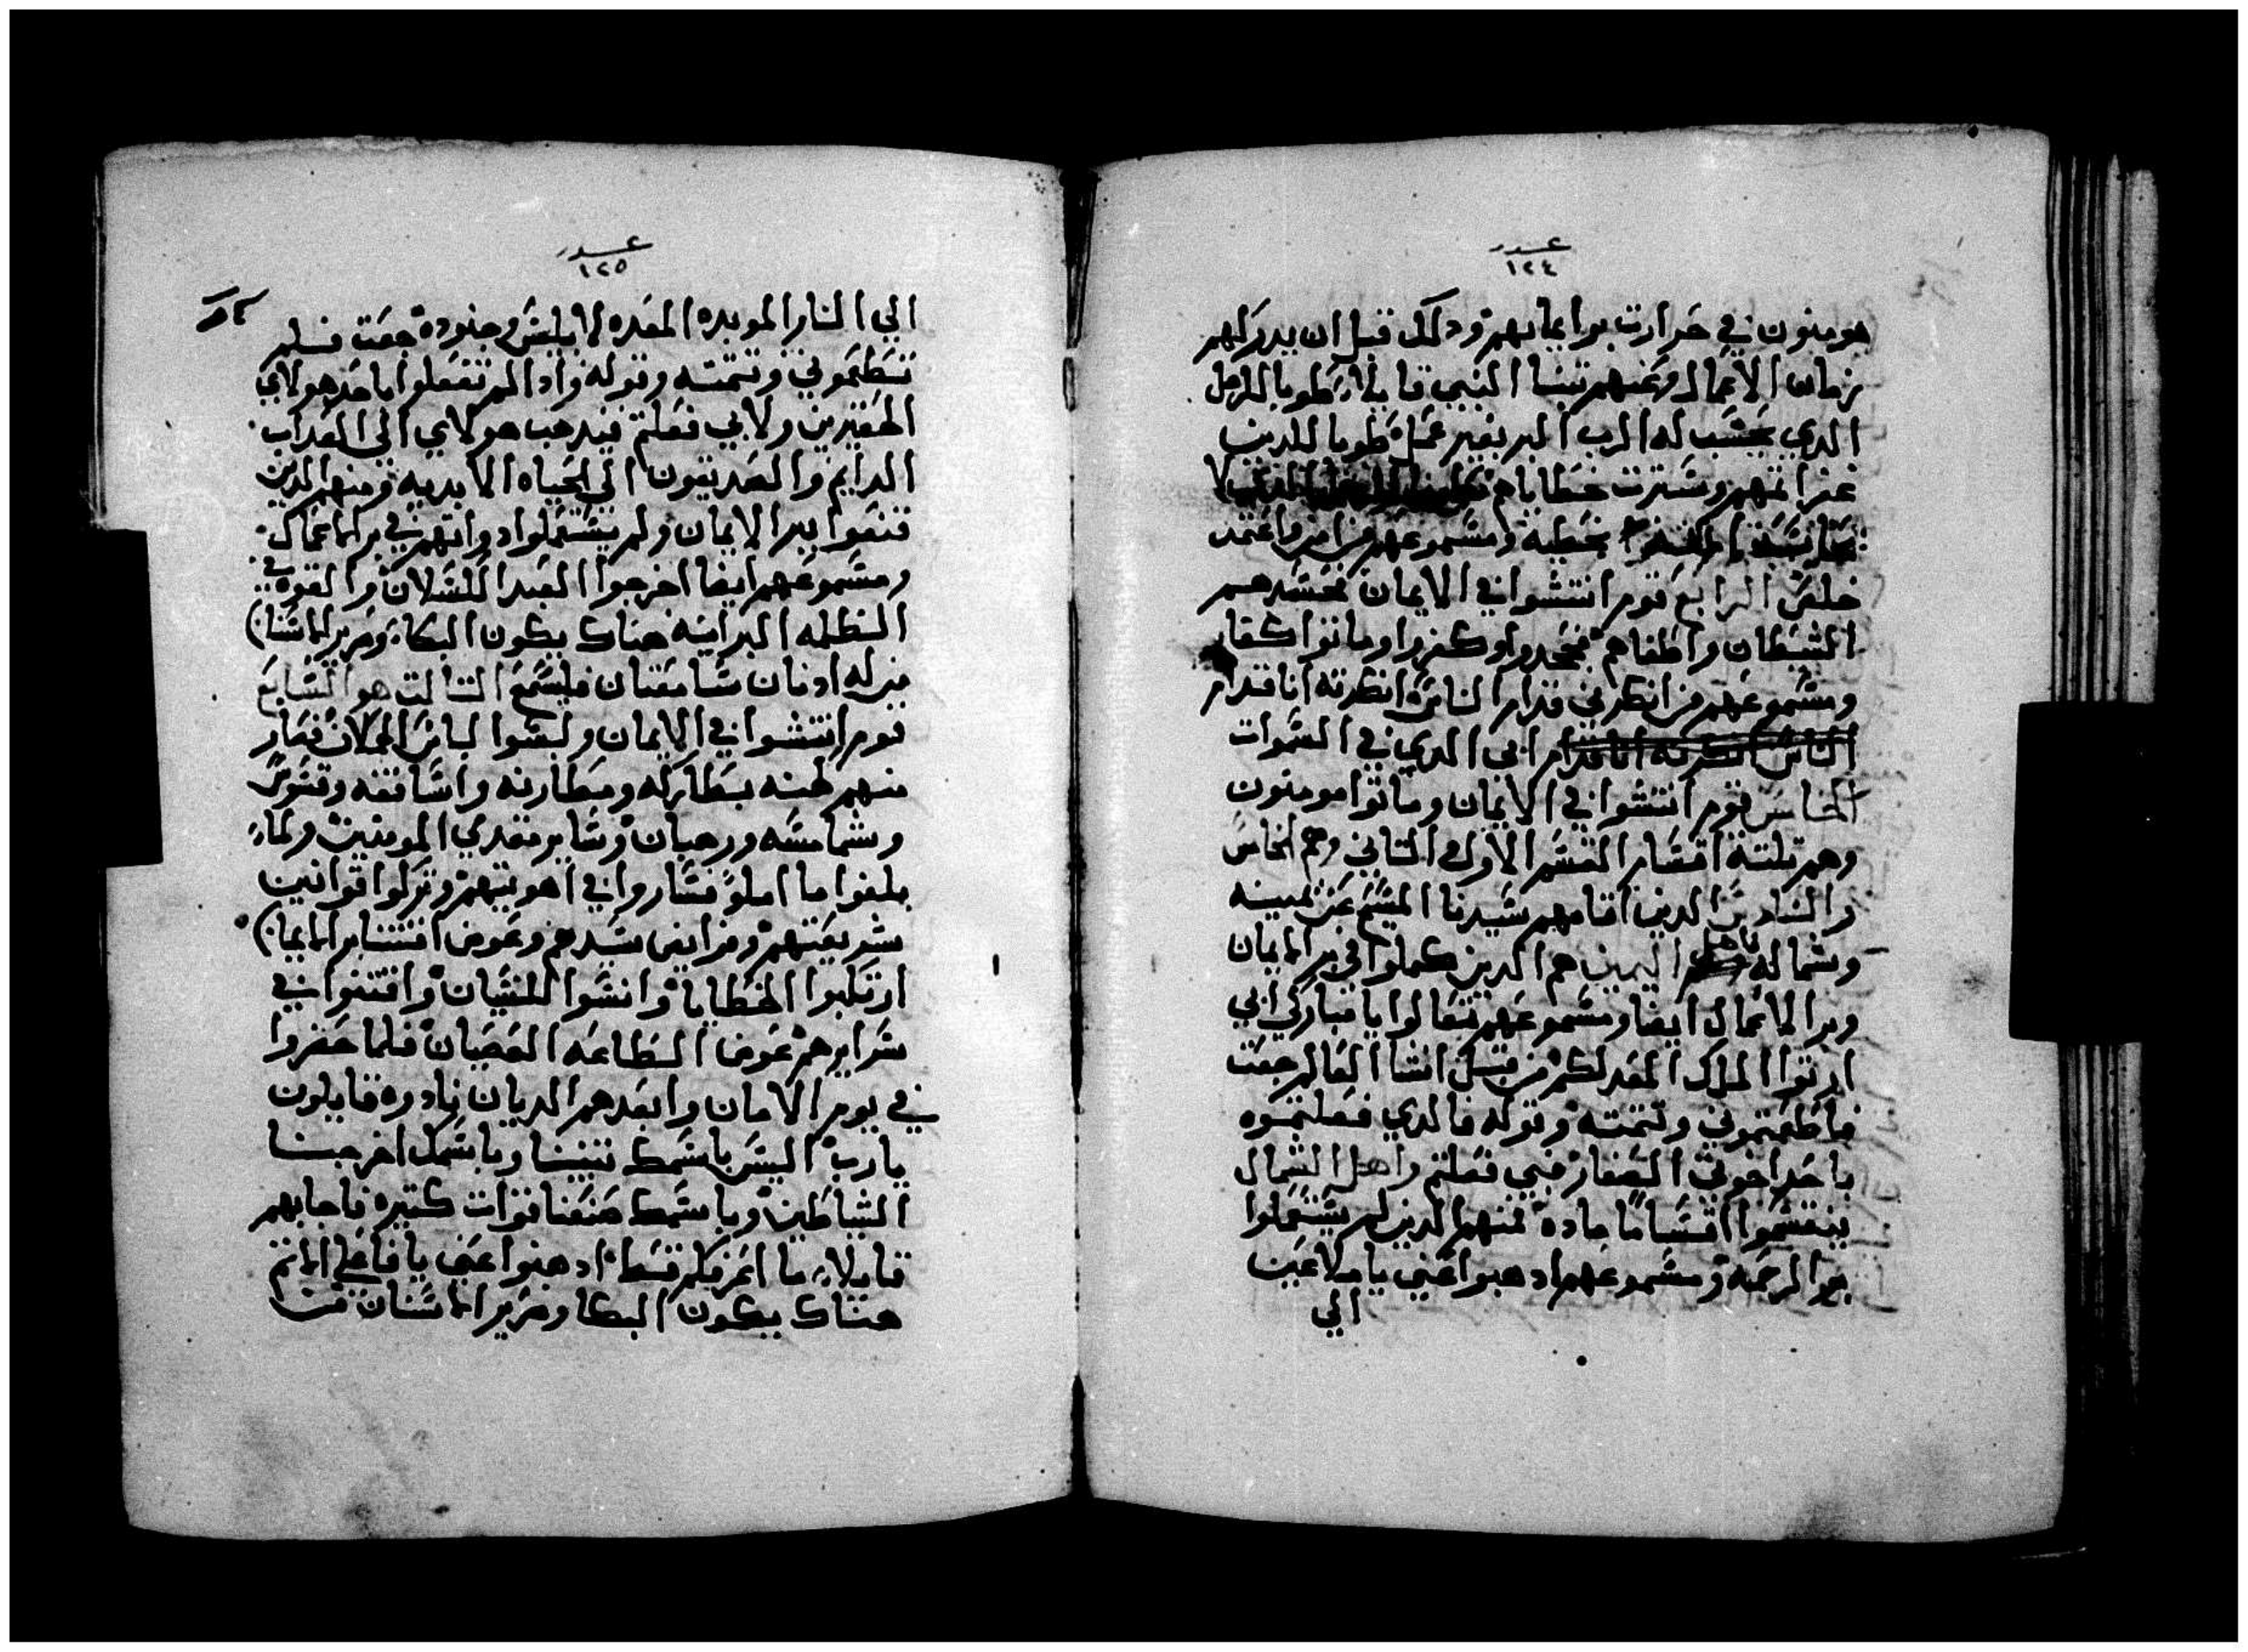 عدد
١٢٤
هو منون في حرارت بر ايمانهم ودلك قبل ان يدركهم
زمان الاعمال وعنهم تنبا النبي قايلا طوبا للرجل
الدي يحسب له الرب البر بغير عمل طوبا للدين
غفر اتمهم وسترت خطاياهم لا
خطيه ومسموعهم من امن واعتمد
خلص الرابع قوم انتشوا في الايمان فحسدهم
الشيطان واطغاهم فجحدوا وكفروا وماتوا كفار
ومسموعهم من انكرني قدام الناس انكرته انا قدام
الناس انكرته انا قدام ابي الدي في السموات
الخامس قوم انتشوا في الايمان وماتوا مومنون
وهم تلته اقسام القسم الاول التاني وهم الخامس
والسادس الدين اقامهم سيدنا المسيح عن يمينه
وشماله فاهل اليمين هم الدين كملوا في بر الايمان
وبر الاعمال ايضا ومسموعهم تعالوا يا مباركي ابي
ارتوا الملك المعد لكم من قبل انشا العالم جعت
فاطعمتموني وتتمته وقوله فالدي فعلتموه
باحد اخوتي الصغار فبي فعلتم واهل الشمال
ينقسموا اقسامًا ماده فمنهم الدين لم يستعملوا
بر الرحمه ومسموعهم ادهبوا عني يا ملاعين
الي
عدد
١٢٥
الي النار الموبده المعده لابليس وجنوده جعت فلم
تطعموني وتتمته وقوله واد الم تفعلوا باحد هولاي
الحقيرين ولا بي فعلتم فيدهب هولاي الي العداب
الدايم والصديقون الي الحياه الابديه ومنهم الدين
قنعوا ببر الايمان ولم يستعملوا دواتهم في بر الاعمال
ومسموعهم ايضا اخرجوا العبد الكسلان والقوه في
الظلمه البرانيه هناك يكون البكا وصرير الاسنان
من له ادنان سامعتان فليسمع التالت هو السابع
قوم انتشوا في الايمان ولبسوا لباس الحملان فصار
منهم كهنه بطاركه ومطارنه واساقفه وقسوس
وشمامسه ورهبان وساير مقدمي المومنين ولما
بلغوا ما املوا فساروا في اهويتهم وتركوا قوانين
شريعتهم وفرايض سيدهم وعوض اقتسام الايمان
ارتكبوا الخطايا وانسوا للنسيان وافتنوا في
سرايرهم عوض الطاعه العصيان فلما حضروا
في يوم الامان وابعدهم الديان نادوه قايلون
يارب اليس باسمك تنبينا وباسمك اخرجنا
الشياطين وباسمك صنعنا قوات كتيره فاجابهم
قايلا ما اعرفكم قط ادهبوا عني يا فاعلي الاتم
هناك يكون البكا وصرير الاسنان من